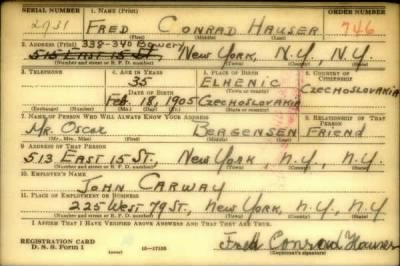 SERIAL NUMBER 1. NAME (Print) ORDER NUMBER
2731 FRED CONRAD HAUSER 746
(First) (Middle) (Last)
2. ADDRESS (Print) 338-340 Bowery
515 EAST 15 ST. NEW YORK, N.Y., N.Y.
(Number and street or R. F. D. number) (Town) (County) (State)
3. TELEPHONE 4. AGE IN YEARS 5. PLACE OF BIRTH 6. COUNTRY OF CITIZENSHIP
35 ELHENIC CZECHOSLOVAKIA
DATE OF BIRTH (Town or county)
FEB. 18, 1905 CZECHOSLOVAKIA
(Exchange) (Number) (Mo.) (Day) (Yr.) (State or country)
7. NAME OF PERSON WHO WILL ALWAYS KNOW YOUR ADDRESS 8. RELATIONSHIP OF THAT PERSON
MR. OSCAR BERGENSEN FRIEND
(Mr., Mrs., Miss) (First) (Middle) (Last)
9. ADDRESS OF THAT PERSON
513 EAST 15 ST., NEW YORK, N.Y., N.Y.
(Number and street or R. F. D. number) (Town) (County) (State)
10. EMPLOYER'S NAME
JOHN CARWAY
11. PLACE OF EMPLOYMENT OR BUSINESS
225 WEST 79 ST., NEW YORK, N.Y., N.Y.
(Number and street or R. F. D. number) (Town) (County) (State)
I AFFIRM THAT I HAVE VERIFIED ABOVE ANSWERS AND THAT THEY ARE TRUE.
REGISTRATION CARD
D. S. S. Form 1 16-17105 Fred Conrad Hauser
(Registrant's signature)